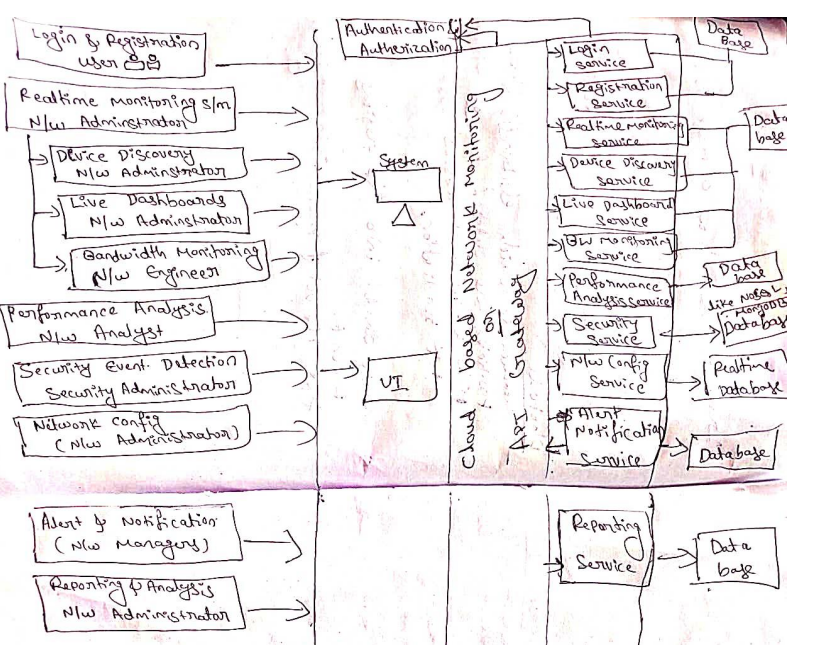 Login & Registration
User
Realtime Monitoring S/m
N/w Adminstrator
Device Discovery
N/w Adminstrator
Live Dashboards
N/w Adminstrator
Bandwidth Monitoring
N/w Engineer
Performance Analysis
N/w Analyst
Security Event Detection
Security Administrator
Network Config
(N/w Administrator)
Alert & Notification
(N/w Managers)
Reporting & Analysis
N/w Administrator
Authentication &
Autherization
System
UI
Cloud based Network Monitoring
or
API Gateway
Login
Service
Registration
Service
Realtime Monitoring
Service
Device Discovery
Service
Live Dashboard
Service
BW Monitoring
Service
Performance
Analysis service
Security
Service
N/w Config
Service
Alert
Notification
Service
Reporting
Service
Data
Base
Data
base
Data
base
like NoSQL
MongoDB
Database
Realtime
Database
Database
Data
base